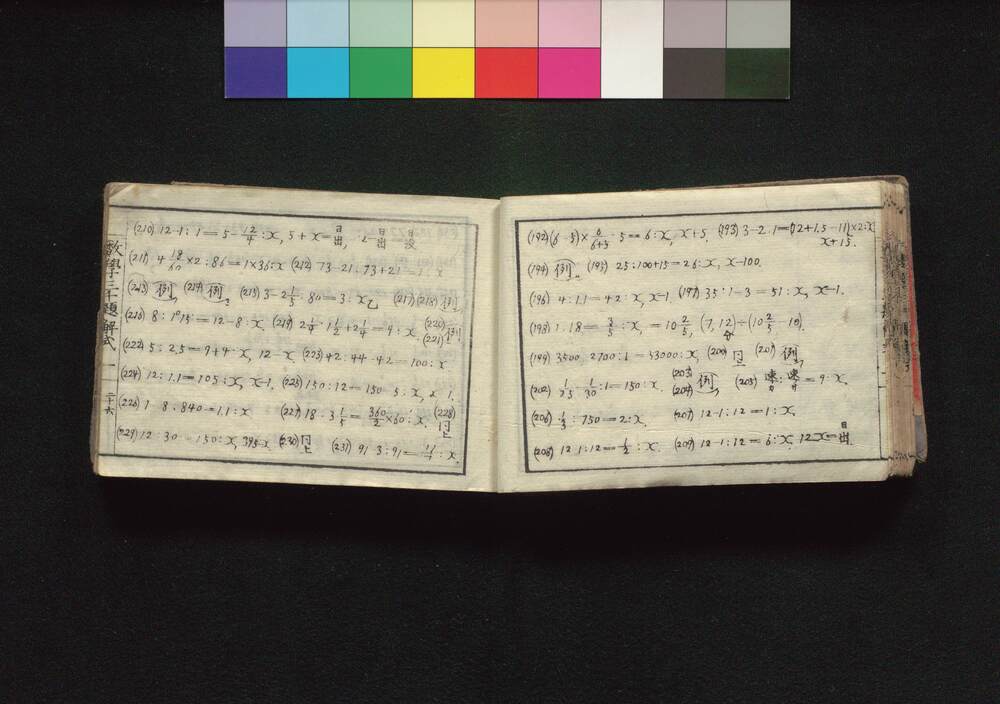 (192) (6-5)×6/(6+5)·5=6:x, x+5. (193) 3-2:1=(12+1.5-11)×2:x x+15.
(194) 例. (195) 25:100+15=26:x, x-100.
(196) 4:1.1=42:x, x-1. (197) 35:1-3=51:x, x-1.
(198) 1:18=3/5:x, =10 2/5, (7,12)÷(10 2/5-10).
(199) 3500-2700:1=53000:x, (200) 同上 (201) 例,
(202) 1/25-1/30:1=150:x. (203) (204) 例, (205) 速力:速力=9:x.
(206) 1/3:750=2:x. (207) 12-1:12=1:x.
(208) 12-1:12=1/2:x. (209) 12-1:12=6:x, 12-x=日出
(210) 12-1:1=5-12/4:x, 5+x=日出, 12-日出 日没
(211) 4 18/60×2:86=1×36:x (212) 73-21:73+21=1:x
(213) 例, (214) 例, (215) 3-2 1/3:80=3:x乙 (217) (218) 例,
(216) 8:1°15'=12-8:x. (219) 2 1/4-1 1/2+2 1/4=9:x. (220) (221) 例
(222) 5:2.5=9+4:x, 12-x (223) 42:44-42=100:x
(224) 12:1.1=105:x, x-1. (225) 150:12=150-5:x, x-1.
(226) 1-8:840=1.1:x (227) 18:3 1/5=360/2×60:x. (228) 同上
(229) 12:30=150:x, 395-x (230) 同上 (231) 91-3:91=11/1:x.
数學三千題解式 一 二十六